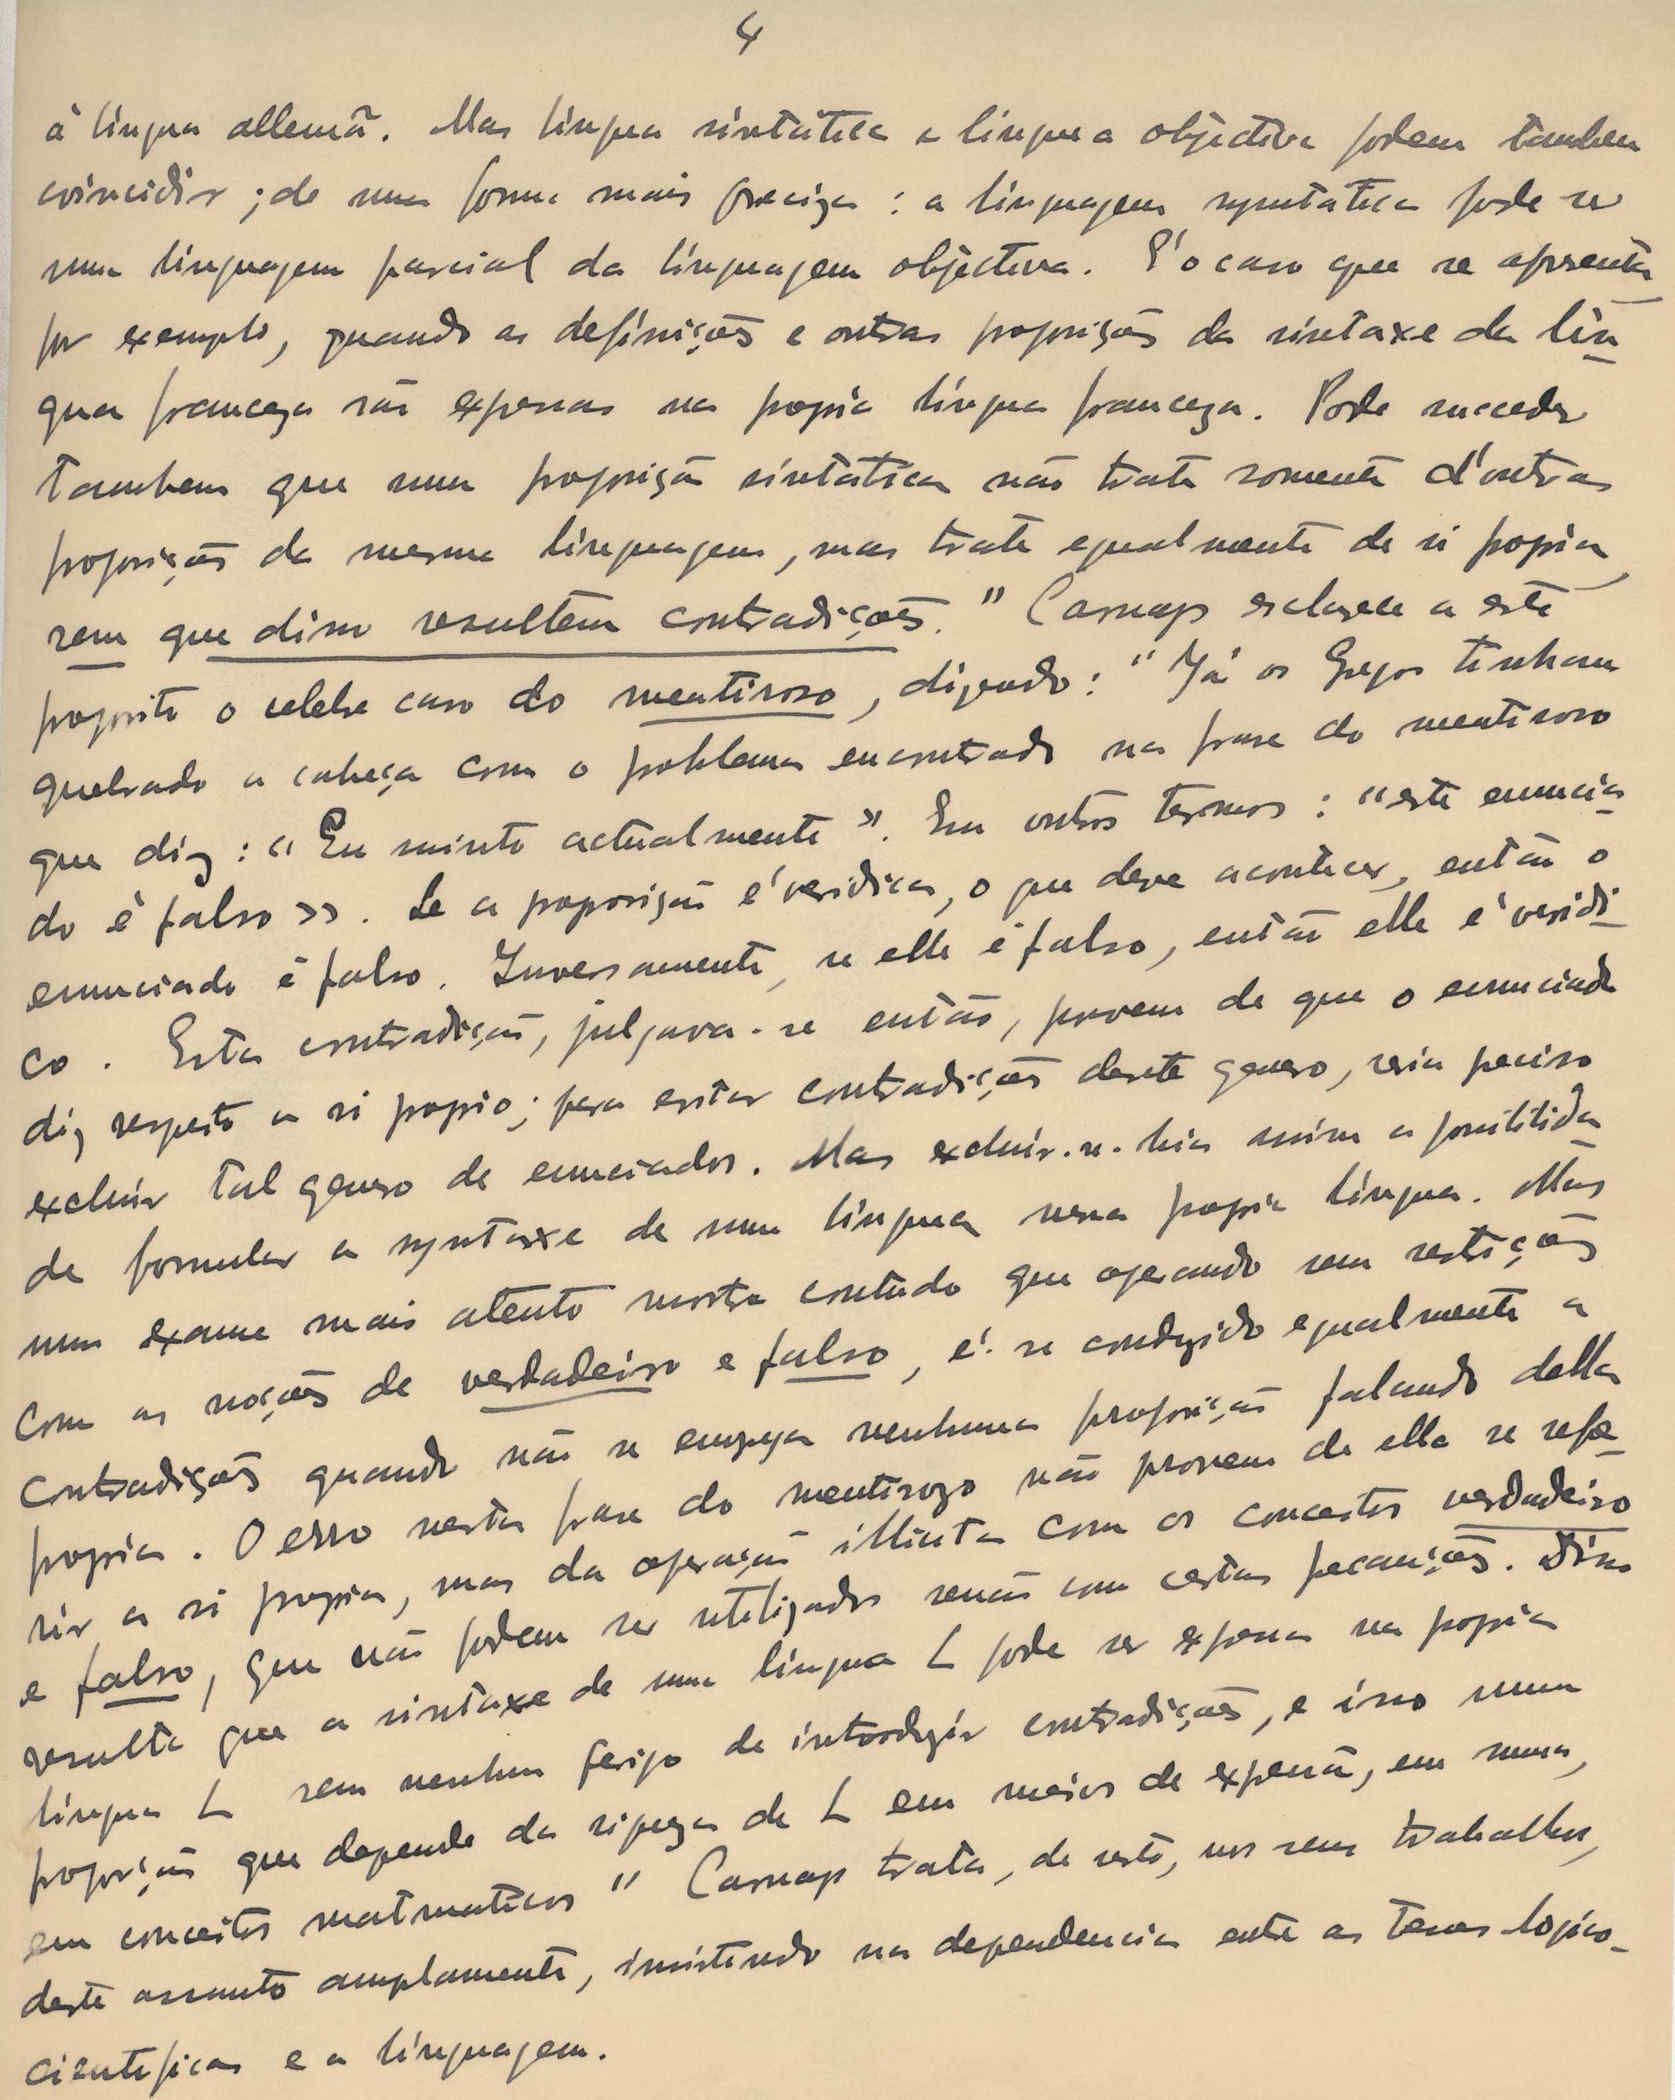 4
á lingua allemã. Mas lingua sintática e lingua objectiva podem tambem
coincidir ; de uma forma mais preciza : a linguagem syntática pode ser
uma linguagem parcial da linguagem objectiva. E' o caso que se apresenta
por exemplo, quando as definições e outras proposições da sintaxe da lin-
gua franceza são expostas na propia lingua franceza. Pode succeder
tambem que uma proposição sintática não trate somente d'outras
proposições da mesma linguagem, mas trate egualmente de si propia,
sem que disso resultem contradições." Carnap esclarece a este
proposito o celebre caso do mentiroso, dizendo : "Já os Gregos tinham
quebrado a cabeça com o problema encontrado na frase do mentiroso
que diz : «Eu minto actualmente». Em outros termos : «este enuncia-
do é falso». Se a proposição é veridica, o que deve acontecer, então o
enunciado é falso. Inversamente, se elle é falso, então elle é veridi-
co. Esta contradição, julgava-se então, provem de que o enunciado
diz respeito a si propio ; para evitar contradições deste genero, seria preciso
excluir tal genero de enunciados. Mas excluir-se-hia assim a possibilida-
de formular a syntaxe de uma lingua nessa propia lingua. Mas
um exame mais atento mostra contudo que operando sem restições
com as noções de verdadeiro e falso, é-se conduzido egualmente a
contradições quando não se emprega nenhuma proposição falando della
propia. O erro nesta frase do mentirozo não provem de ella se refe-
rir a si propia, mas da operação illicita com os conceitos verdadeiro
e falso, que não podem ser utilizados senão com certas precauções. Disso
resulta que a sintaxe de uma lingua L pode ser exposta na propia
lingua L sem nenhum perigo de introduzir contradições, e isso numa
proporção que depende da riqueza de L em meios de expressão, em suma,
em conceitos matmaticos" Carnap trata, de resto, nos seus trabalhos,
deste assunto amplamente, insistindo na dependencia entre as teses logico-
cientificas e a linguagem.